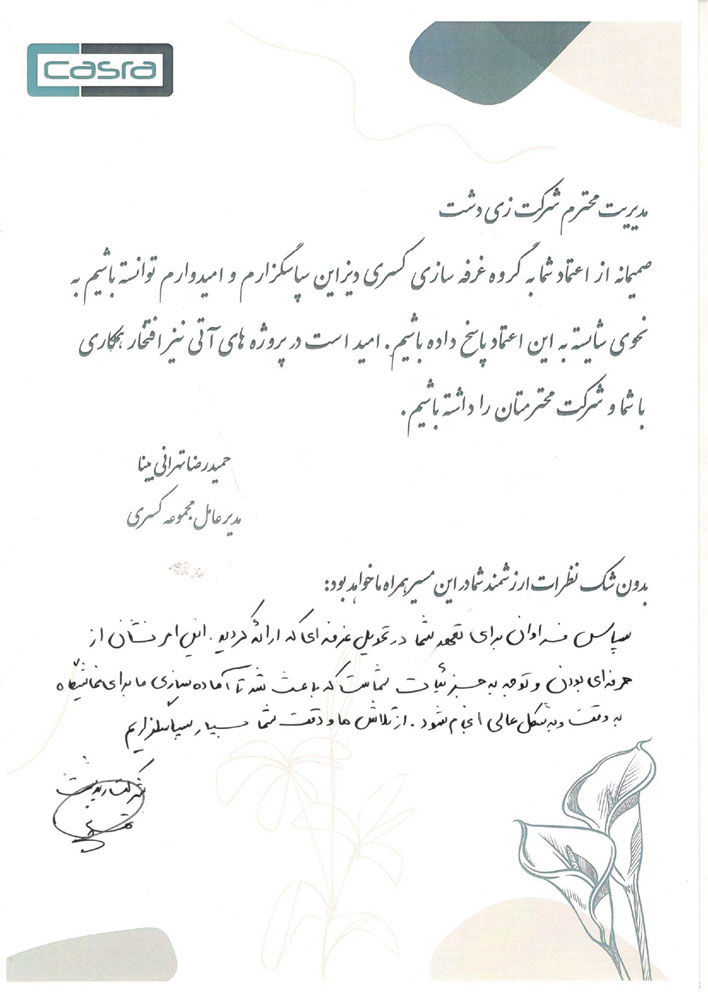 casra
مدیریت محترم شرکت زی دشت
صمیمانه از اعتماد شما به گروه غرفه سازی کسری دیزاین سپاسگزارم و امیدوارم توانسته باشیم به
نحوی شایسته به این اعتماد پاسخ داده باشیم. امید است در پروژه های آتی نیز افتخار همکاری
با شما و شرکت محترمتان را داشته باشیم.
حمیدرضا تهرانی بینا
مدیرعامل مجموعه کسری
بدون شک نظرات ارزشمند شما در این مسیر همراه ما خواهد بود:
سپاس فراوان برای تعهد شما در تحویل غرفه ای که ارائه کردید. این امر نشان از
حرفه ای بودن و توجه به جزئیات شماست که باعث شد تا آماده سازی ما برای نمایشگاه
به دقت و به شکل عالی انجام شود. از تلاش ها و دقت شما بسیار سپاسگزاریم
شرکت زی دشت